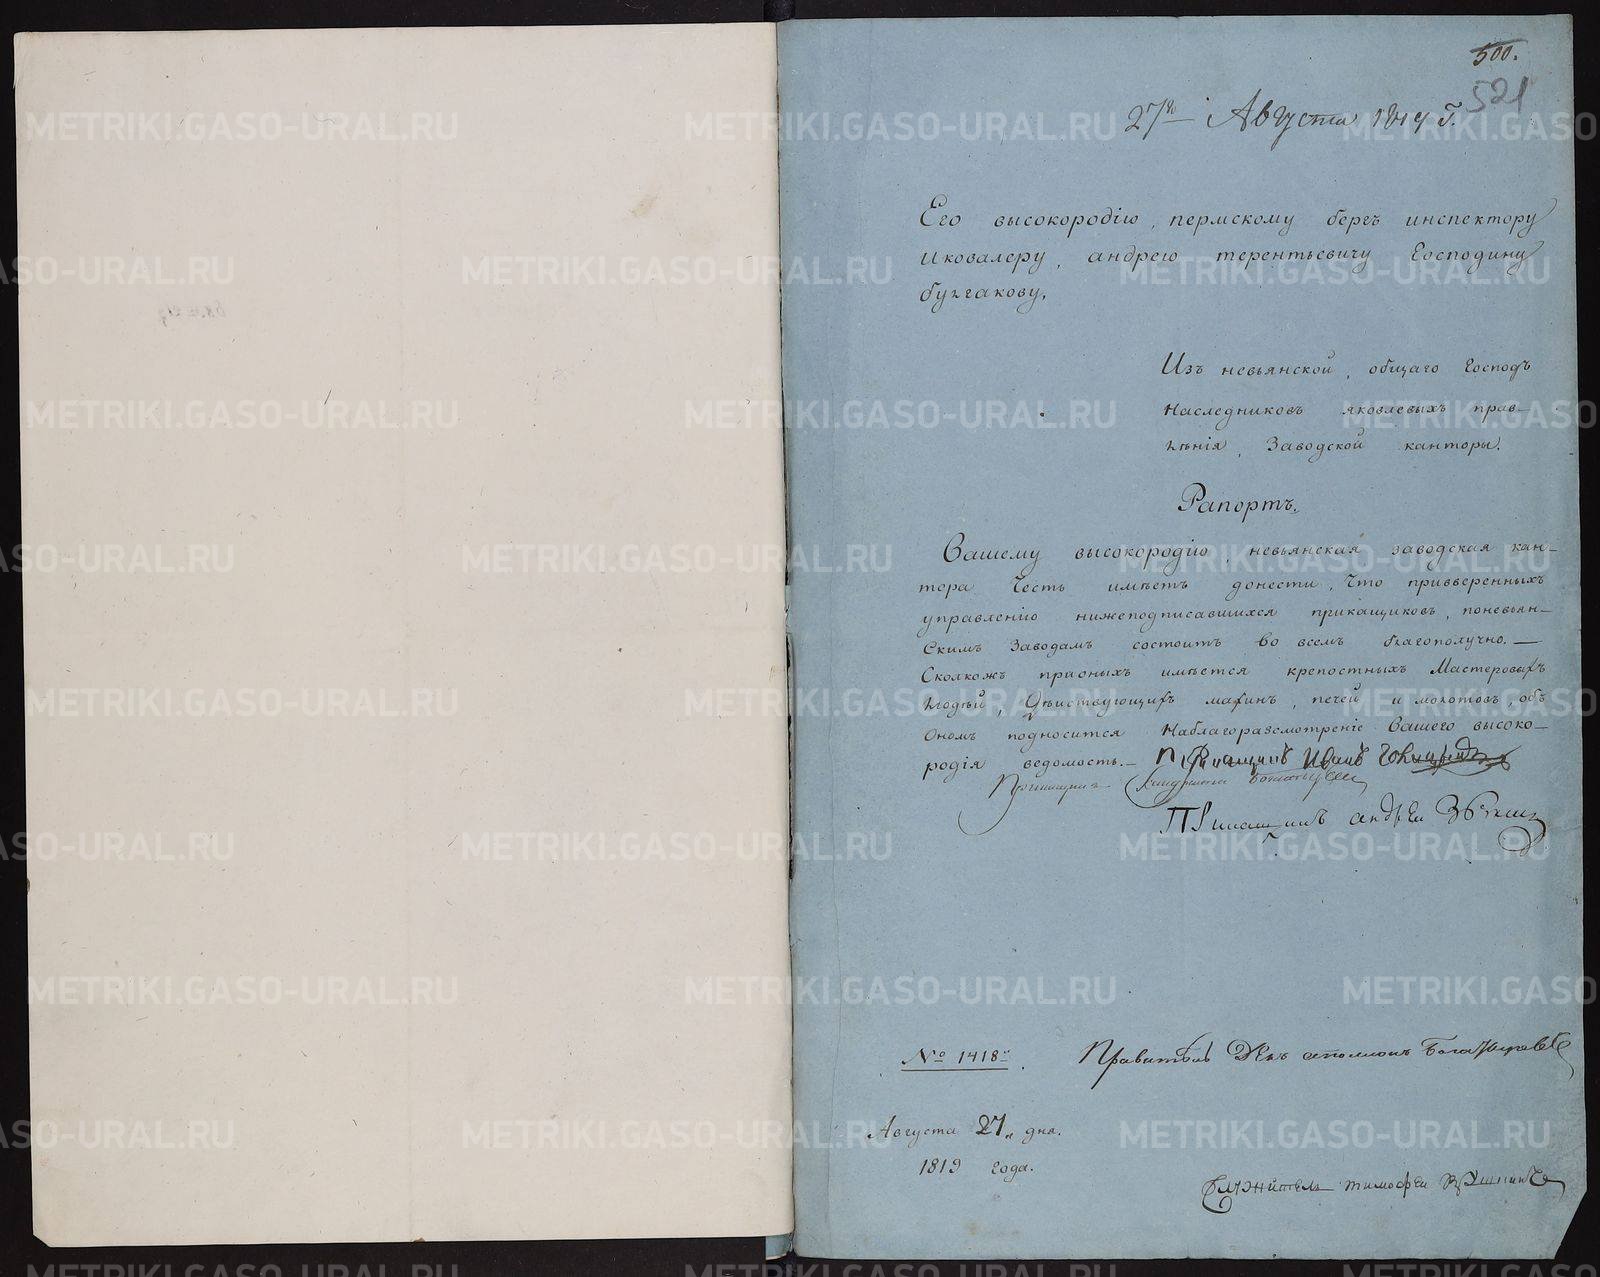 500.
521
27го Августа 1819 Г.
Его высокородію, пермскому бергъ инспектору
Иковалеру, андрею терентьевичу Господину
булгакову,
Изъ невьянской, общаго Господъ
Наследниковъ яковлевыхъ прав-
лѣнія, Заводской канторы,
Рапортъ.
Вашему высокородію невьянская заводская кан-
тора Честь имѣетъ донести, Что привверенныхъ
управленію нижеподписавшихся прикащиковъ, поневьян-
Скимъ Заводамъ состоитъ во всемъ благополучно.—
Сколкожъ прионыхъ имѣется крепостныхъ Мастеровыхъ
людѣй, Дѣиствующихъ махинъ, печей и молотовъ, объ
Ономъ подносится Наблагоразсмотреніе Вашего высоко-
родія ведомость.— Прикащикъ Иванъ
Прикащикъ
Прикащикъ андреи
№ 1418й. Правитель Дѣлъ Богатырева
Августа 27 дня.
1819 года.
тимофеи
METRIKI.GASO-URAL.RU